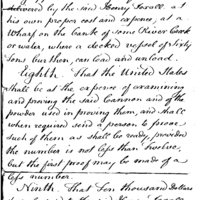 delivered by the said Henry Foxall, at
his own proper cost and expense, at a
Wharf on the bank of some River Creek
or water, where a decked vessel of Sixty
Tons burthen, can load and unload.
Eighth. That the United States
shall be at the expense of examining
and proving the said Cannon and of the
powder used in proving them, and shall
when required send a person to prove
such of them as shall be ready, provided
the number is not less than twelve,
but the first proof may be made of a
less number.
Ninth. That Ten thousand Dollars